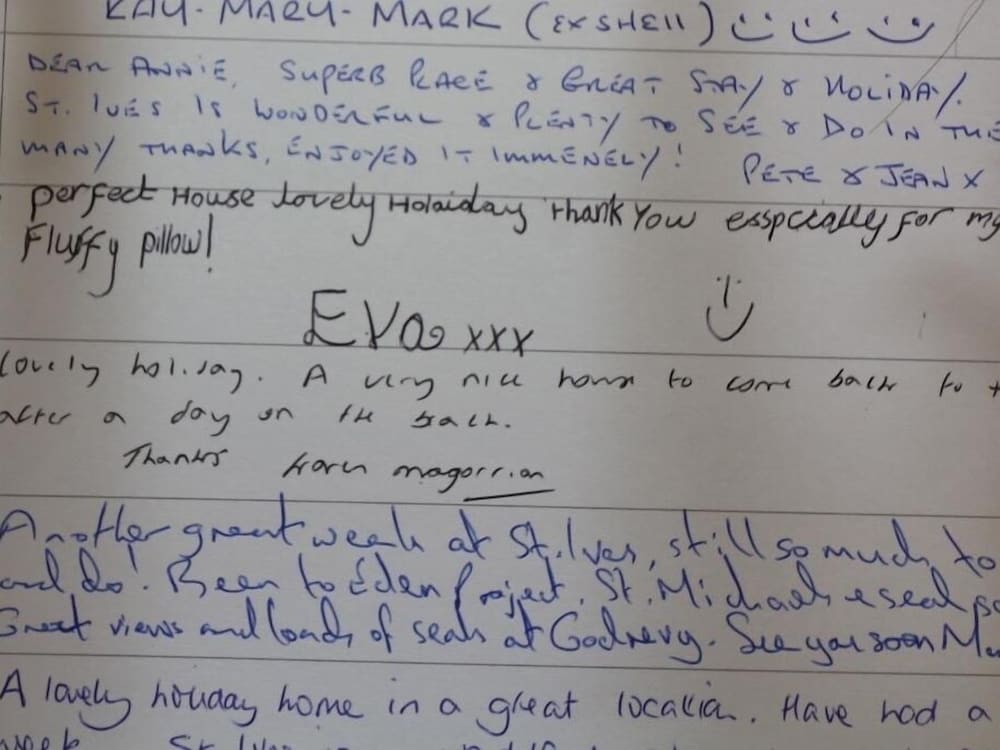 KAY - MARY - MARK (EX SHELL)
DEAR ANNIE, SUPERB PLACE & GREAT STAY & HOLIDAY.
ST. IVES IS WONDERFUL & PLENTY TO SEE & DO IN THE
MANY THANKS, ENJOYED IT IMMENELY!
PETE & JEAN X
perfect House lovely Holaiday thank You esspcially for my
Fluffy pillow!
Eva xxx
Lovely holiday. A very nice house to come back to
after a day on the beach.
Thanks Karen magorrian
Another great week at St. Ives, still so much to
and do! Been to Eden Project, St. Michaels & seal
Great views and loads of seals at Godrevy. See you soon
A lovely holiday home in a great location. Have had a
week St. Ives is